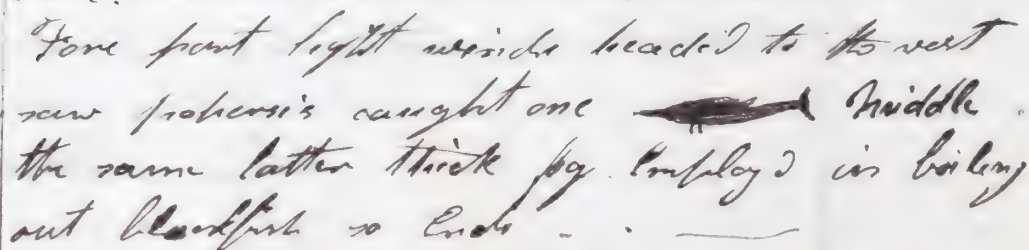 Fore part light winds headed to the west
saw poheris's caught one Middle
the same latter thick fog Employd in boiling
out blackfish so Ends